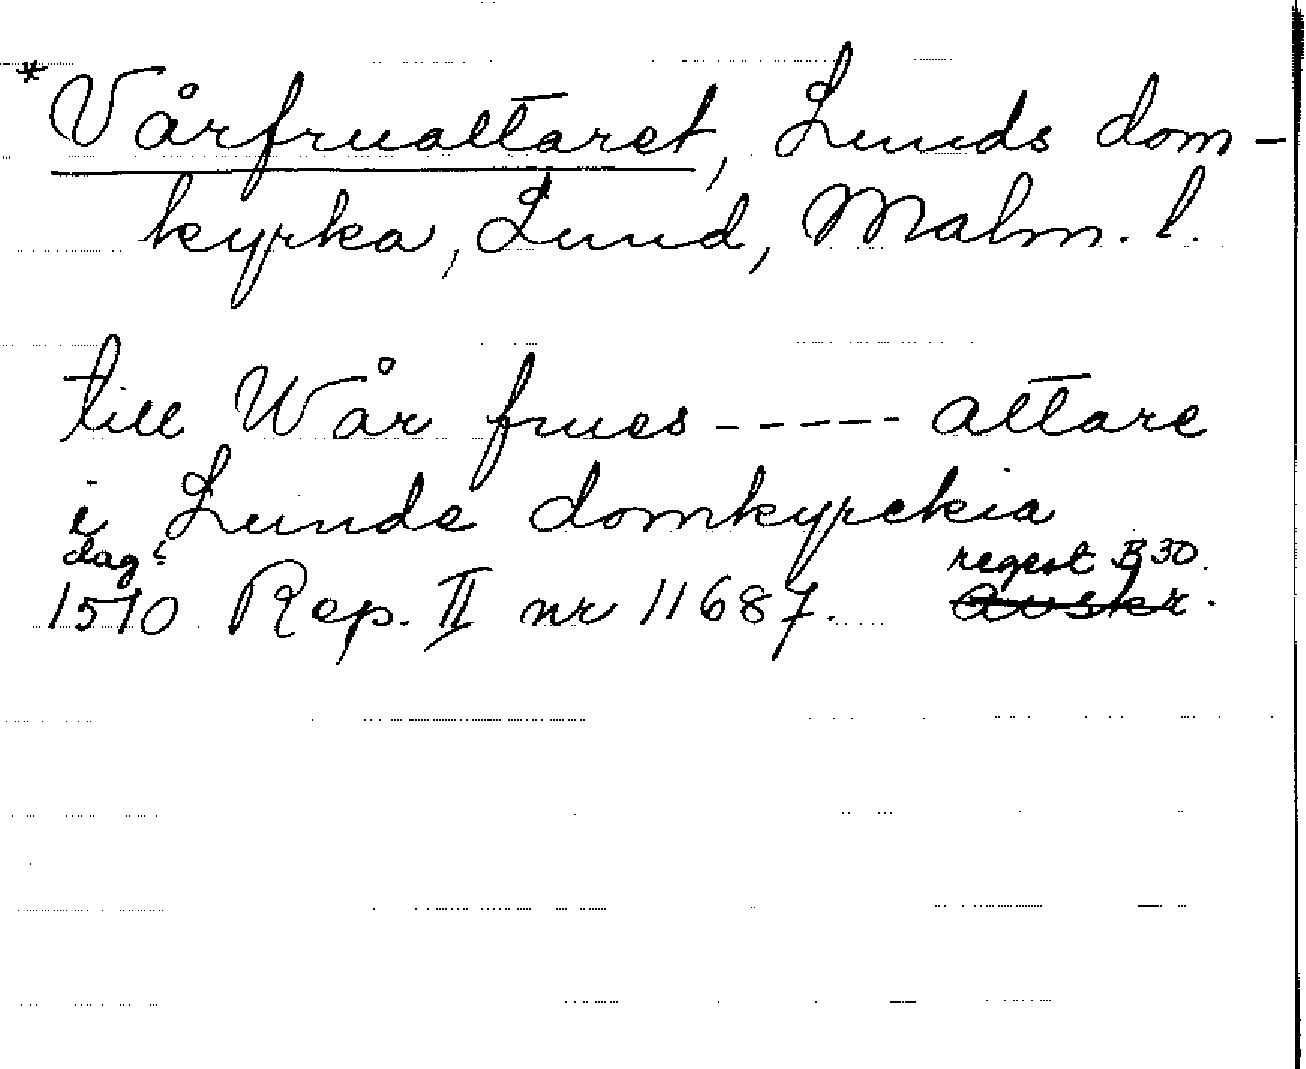 *Vårfrualtaret, Lunds dom-
kyrka, Lund, Malm. l.
till Wår frues ----- altare
i Lunde domkyrckia
dag:
regest B 30.
1510 Rep. II nr 11687. Avskr.